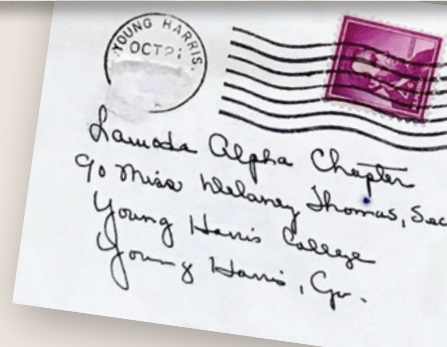 YOUNG HARRIS.
OCT 21
Lamoda Alpha Chapter
c/o Miss Delaney Thomas, Sec
Young Harris College
Young Harris, Ga.